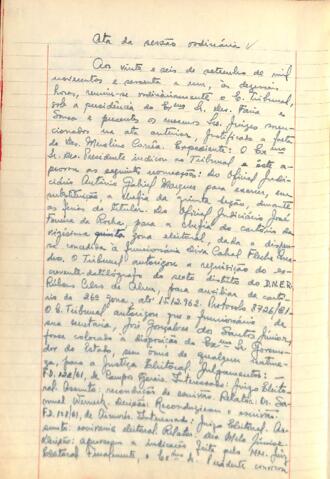 Ata da sessão ordinária
Aos vinte e seis de setembro de mil
novecentos e sessenta e um, às dezesseis
horas, reuniu-se ordinariamente o E. Tribunal,
sob a presidência do Exmo Sr. Des. Faria e
Sousa e presentes os mesmos Srs. Juízes men-
cionados na ata anterior, justificada a falta
do Des. Merolino Corrêa. Expediente: O Exmo
Sr. Des. Presidente indicou ao Tribunal e este a-
provou as seguintes nomeações: do Oficial Judi-
ciário Antônio Gabriel Marques para exercer, em
substituição, a chefia da quinta seção, durante
as férias do titular. do Oficial Judiciário José
Ferreira da Rocha, para a chefia do cartório da
vigésima quinta zona eleitoral, dada a dispen-
sa a funcionária Cabral
O Tribunal autorizou a requisição do es-
crevente datilógrafo do sexto distrito do D.N.E.R.
para auxiliar do cartó-
rio da 269 zona, até 15.12.962. Protocolo 3726/61.
O E. Tribunal autorizou que o funcionário de
sua secretaria, José Gonçalves dos Santos Júnior,
fosse colocado à disposição do Exmo Sr. Governa-
dor do Estado, sem ônus de qualquer nature-
za, para a Justiça Eleitoral. Julgamentos:
120/61, de Campos Gerais. Interessado: Juízo Eleito-
ral. Assunto: recondução do escrivão. Relator: Dr. Sa-
muel Werneck. Decisão: Reconduziram o escrivão.
118/61, de Aimorés. Interessado: Juízo Eleitoral. As-
sunto: escrivania eleitoral. Relator: Des. Melo Júnior.
Decisão: aprovaram a indicação feita pelo MM. Juiz
Eleitoral. Finalmente, o Exmo Sr. Presidente convocou